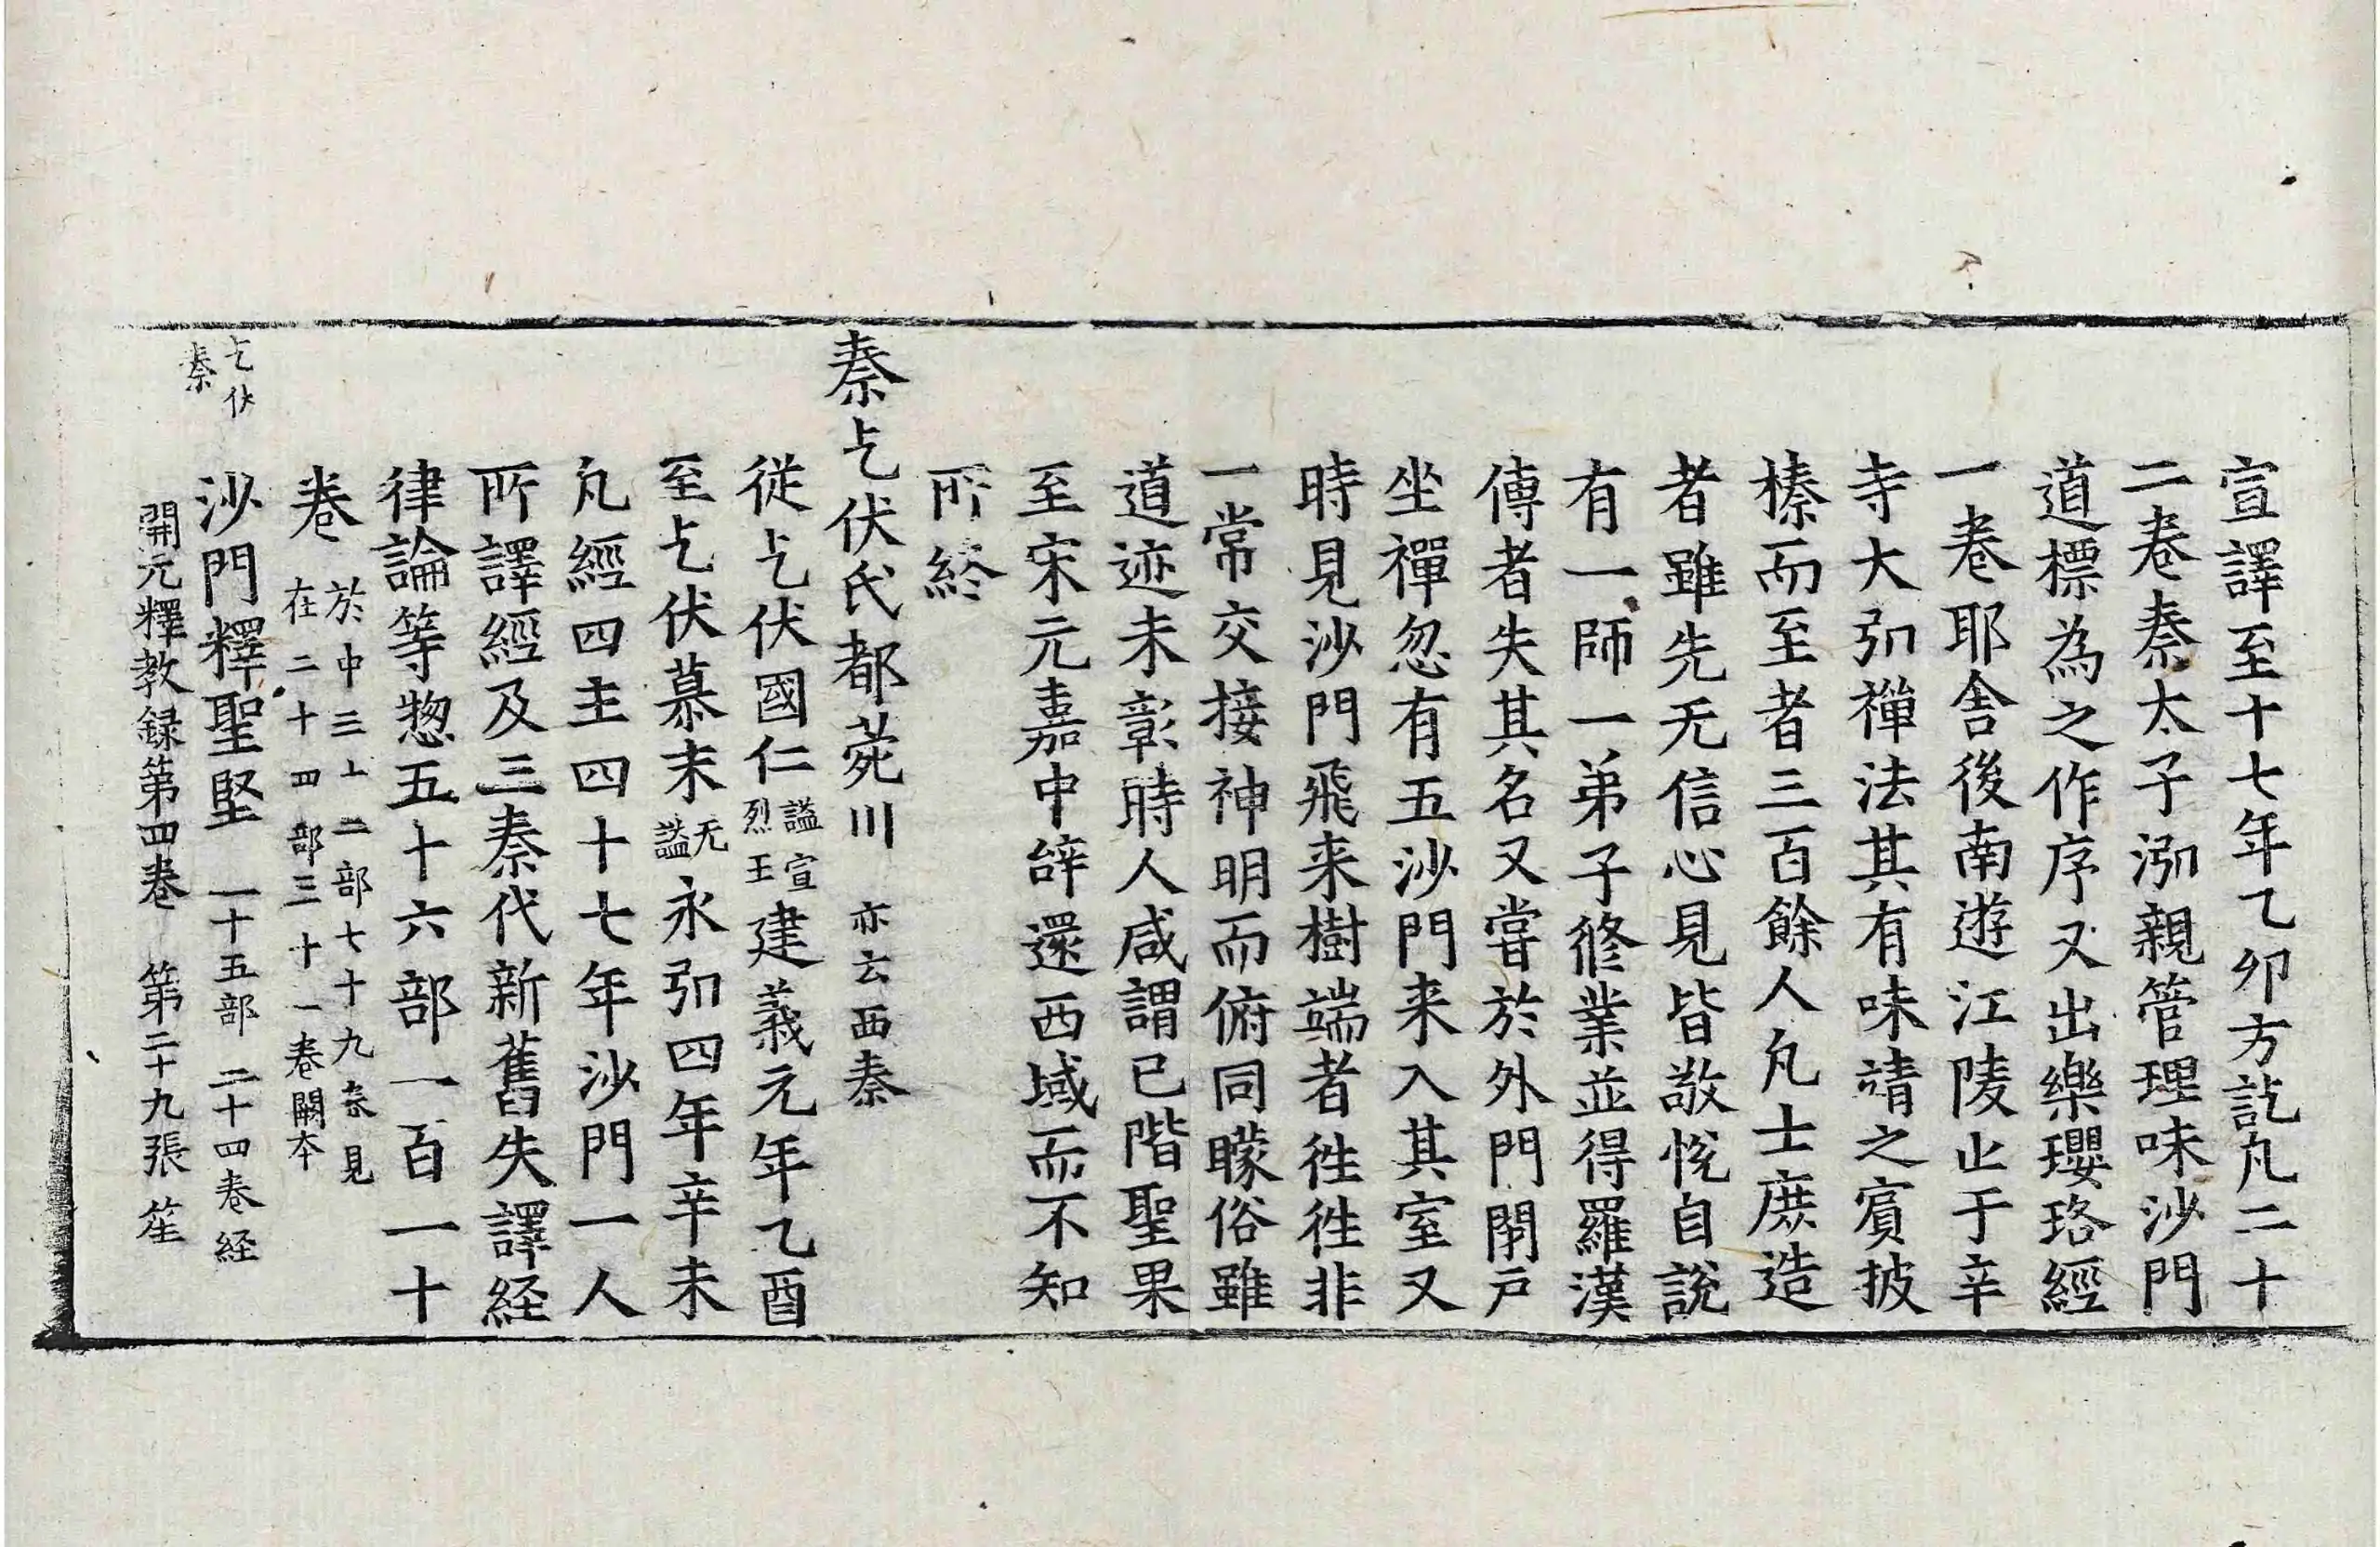 宣譯至十七年乙卯方訖凡二十
二卷秦太子泓親管理味沙門
道標為之作序又出樂瓔珞經
一卷耶舍後南遊江陵止于辛
寺大弘禪法其有味靖之賓披
榛而至者三百餘人凡士庶造
者雖先无信心見皆敬悅自說
有一師一弟子脩業並得羅漢
傳者失其名又嘗於外門閉戶
坐禪忽有五沙門来入其室又
時見沙門飛来樹端者徃徃非
一常交接神明而俯同矇俗雖
道迹未彰時人咸謂已階聖果
至宋元嘉中辝還西域而不知
所終
秦乞伏氏都菀川 亦云西秦
從乞伏國仁謚宣烈王建義元年乙酉
至乞伏慕末无謚永弘四年辛未
凡經四主四十七年沙門一人
所譯經及三秦代新舊失譯経
律論等惣五十六部一百一十
卷 於中三十二部七十九卷見
在二十四部三十一卷闕本
乞伏秦 沙門釋聖堅 一十五部 二十四卷経
開元釋教録第四卷 第二十九張 笙